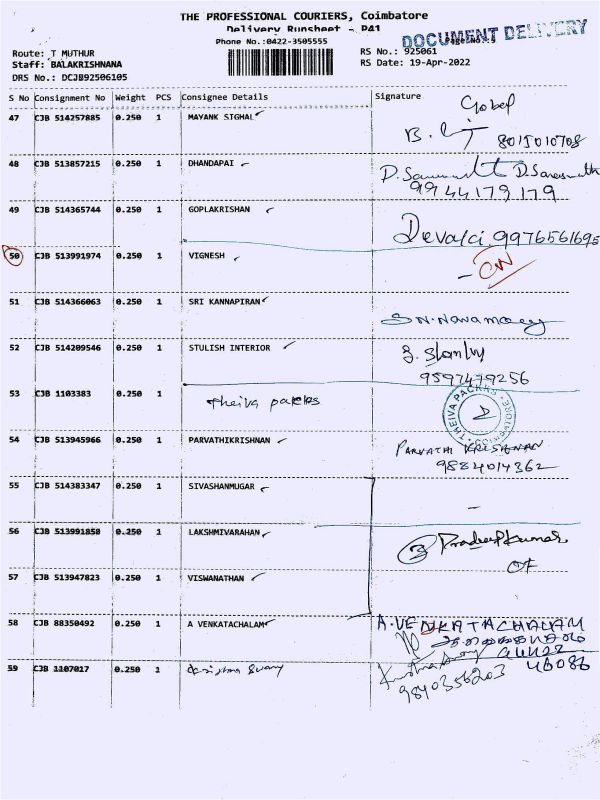 THE PROFESSIONAL COURIERS, Coimbatore
Delivery Runsheet - P41
Phone No.:0422-3505555
DOCUMENT DELIVERY
Route: T MUTHUR
RS No.: 925061
Staff: BALAKRISHNANA
RS Date: 19-Apr-2022
DRS No.: DCJB92506105
S No Consignment No Weight PCS Consignee Details Signature
47 CJB 514257885 0.250 1 MAYANK SIGHAL
8015010708
48 CJB 513857215 0.250 1 DHANDAPAI
9944179179
49 CJB 514365744 0.250 1 GOPLAKRISHAN
Devaki 9976561695
50 CJB 513991974 0.250 1 VIGNESH
51 CJB 514366063 0.250 1 SRI KANNAPIRAN
52 CJB 514209546 0.250 1 STULISH INTERIOR
9597479256
53 CJB 1103383 0.250 1 Theiva
THEIVA PACKS COIMBATORE
54 CJB 513945966 0.250 1 PARVATHIKRISHNAN PARVATHI KRISHNAN
9884014362
55 CJB 514383347 0.250 1 SIVASHANMUGAR -
56 CJB 513991850 0.250 1 LAKSHMIVARAHAN
3 Pradeep Kumar
57 CJB 513947823 0.250 1 VISWANATHAN
58 CJB 88350492 0.250 1 A VENKATACHALAM A.VENKATACHALAM
59 CJB 1107017 0.250 1
46086
9840356203